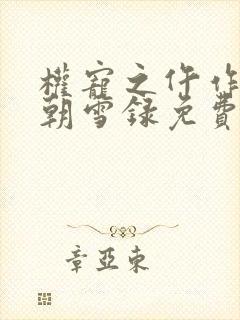 權寵之仵作
朝雪録免費
章亞東